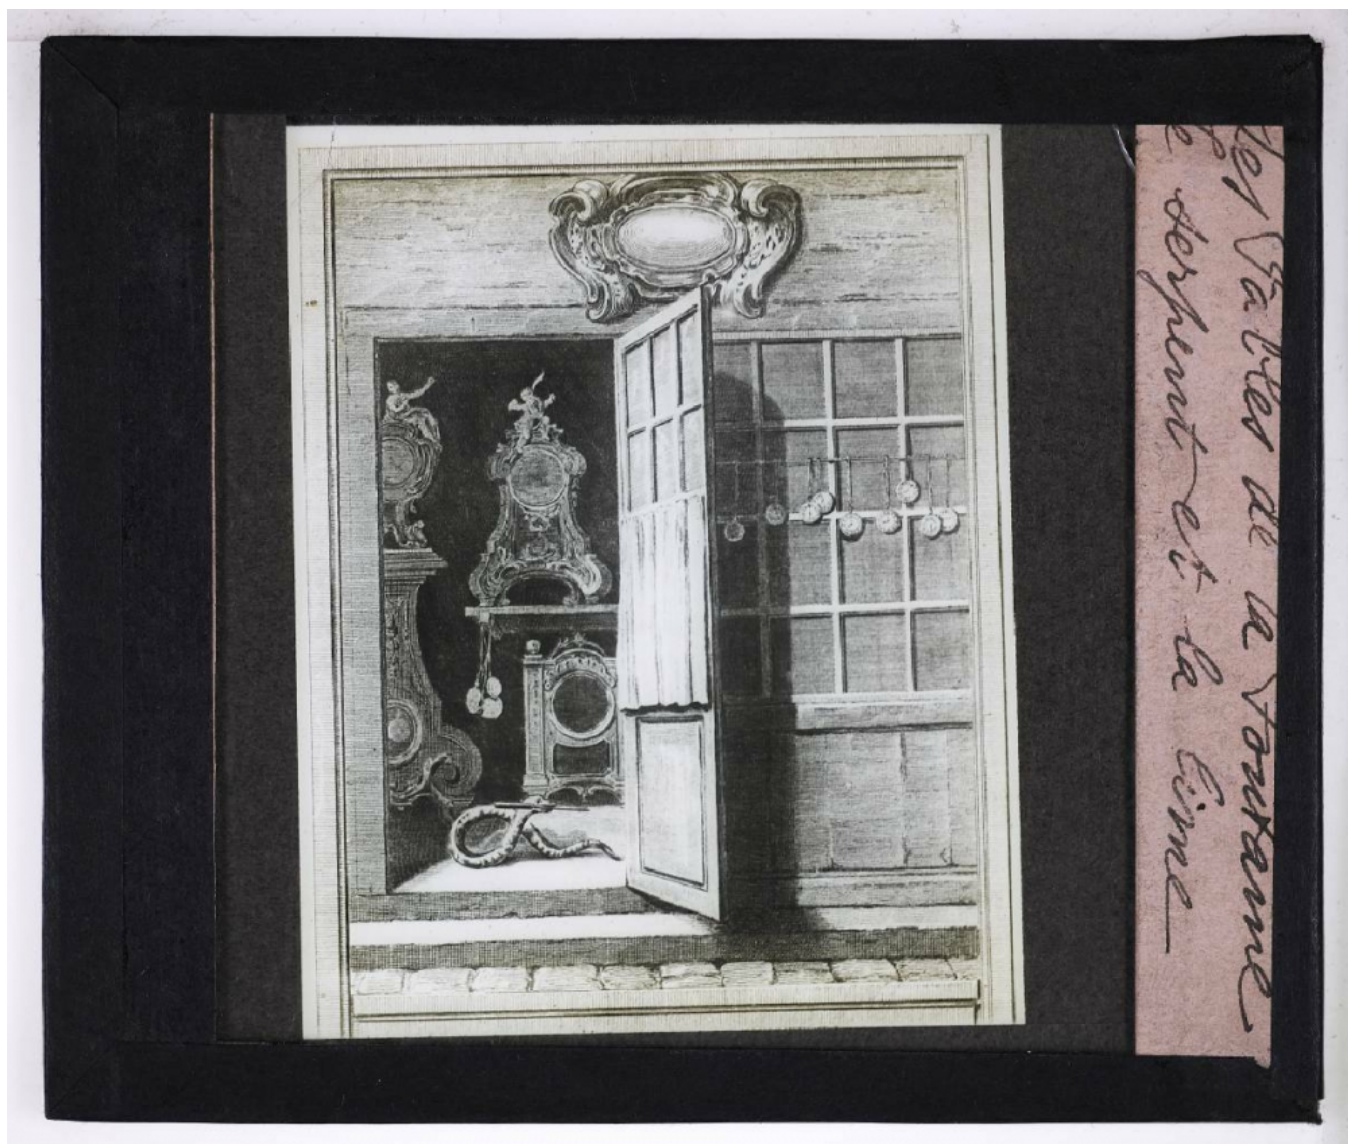 les Fables de la Fontaine
le serpent et la lime